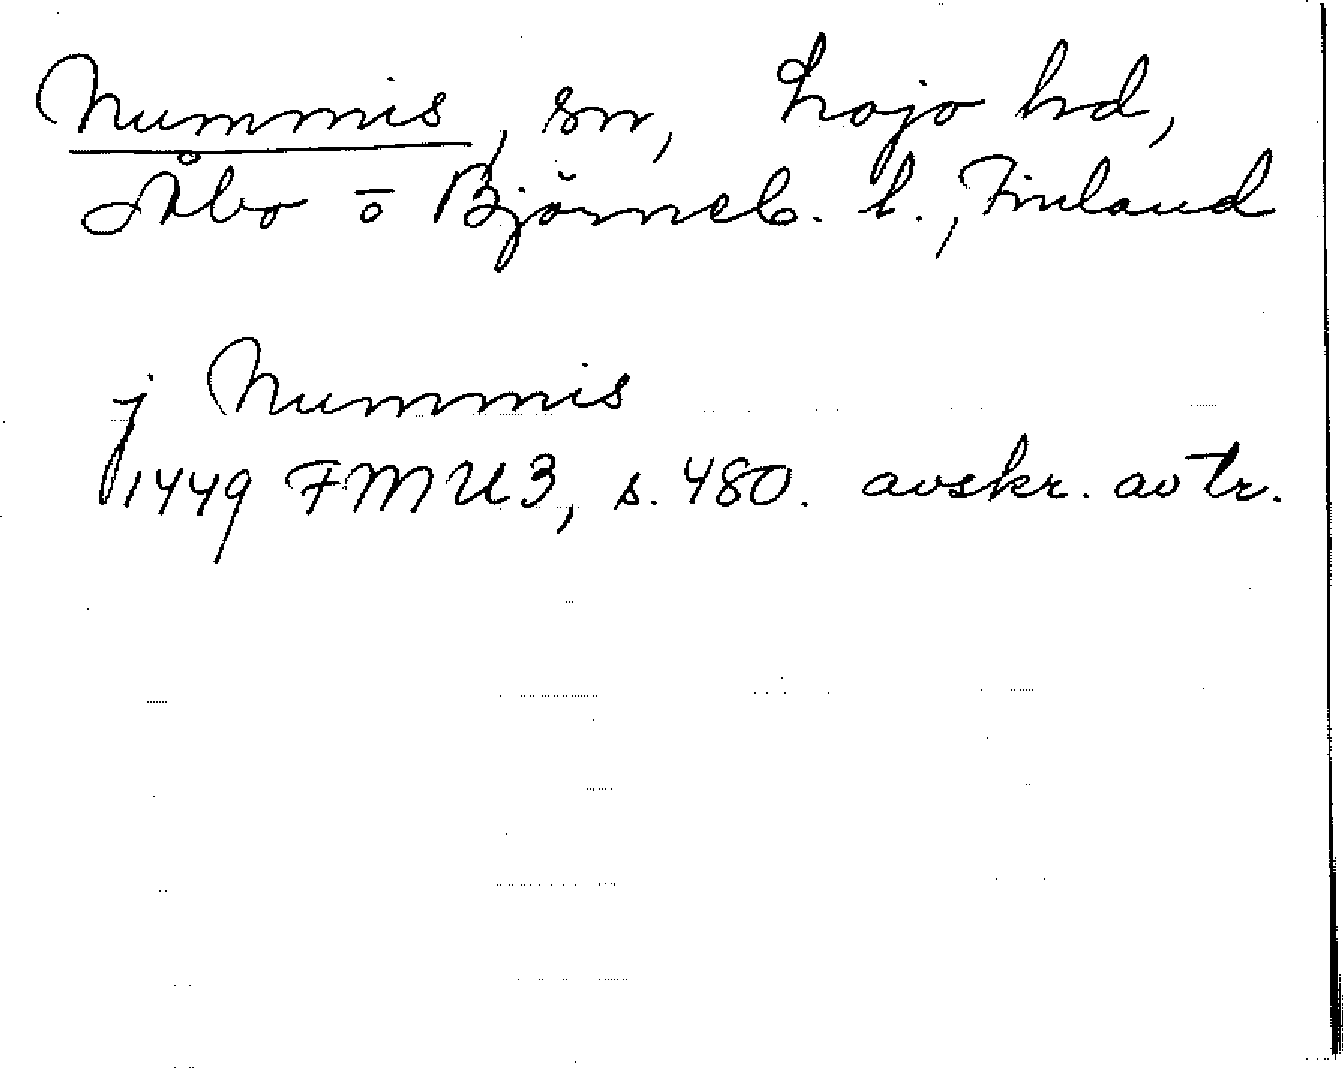 Nummis, sn, Lojo hd,
Åbo o Björneb. l., Finland
j Nummis
1449 FMU3, s. 480. avskr. av tr.